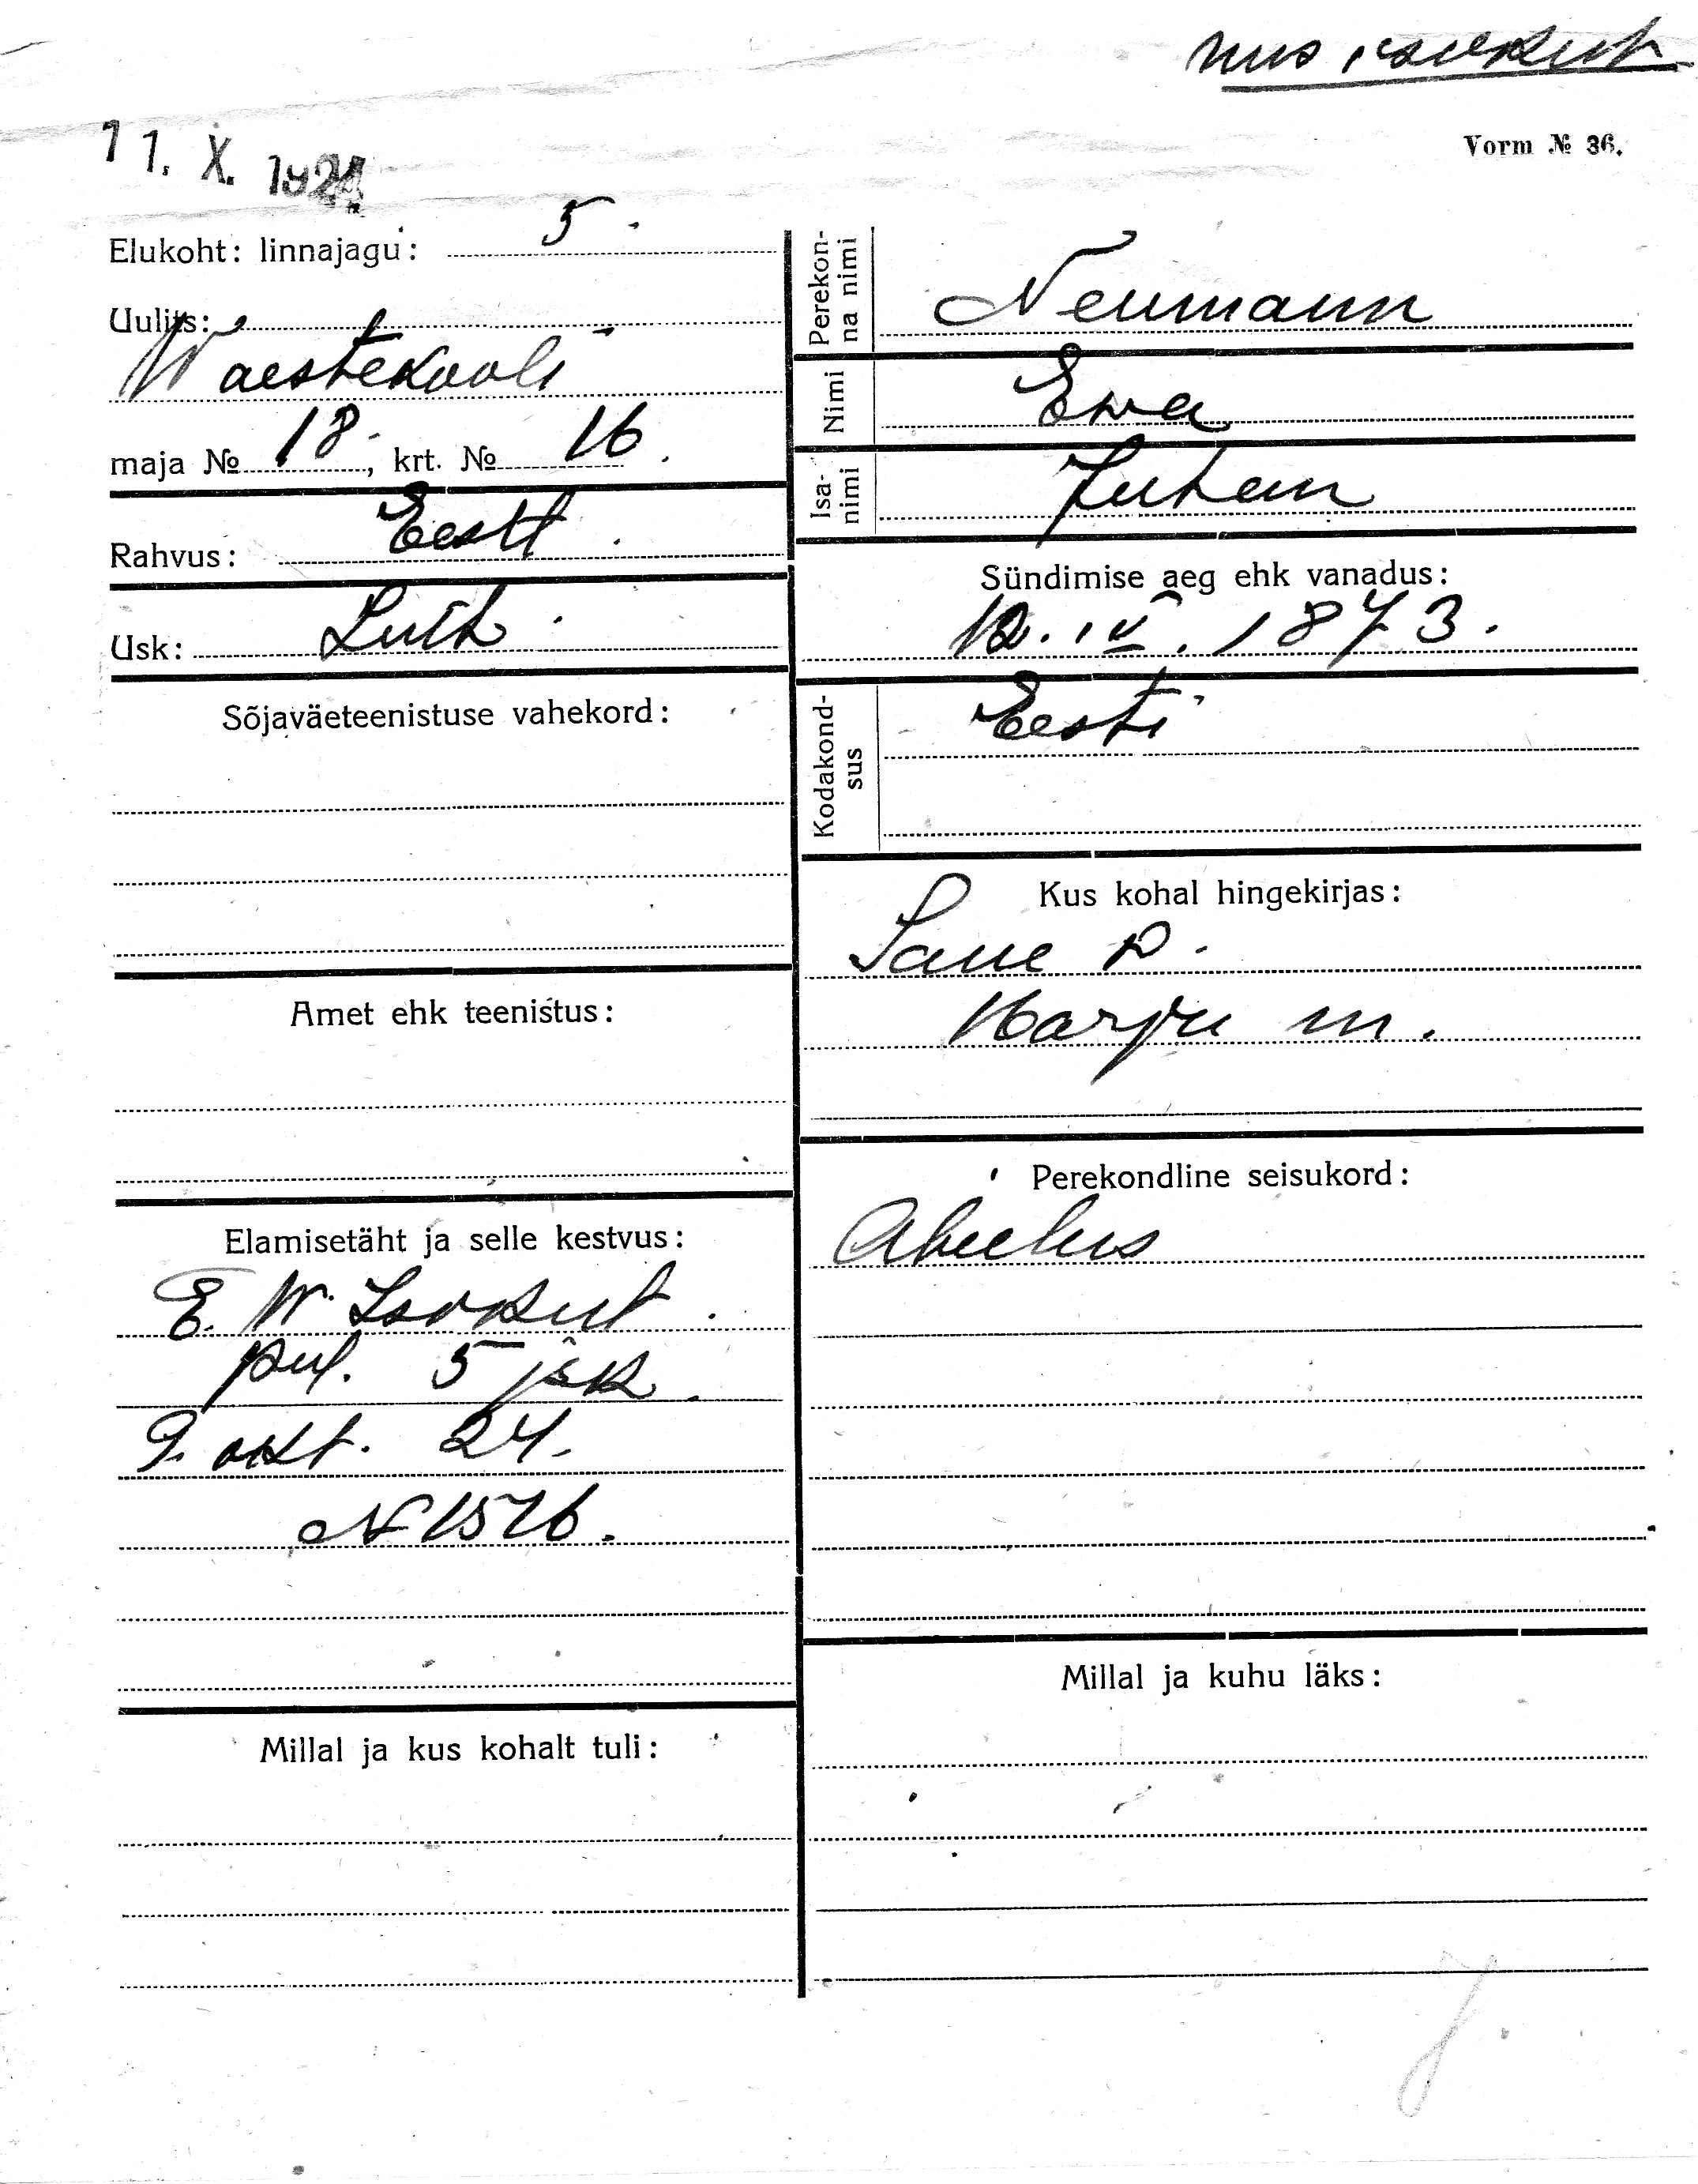 uus isikut
Vorm № 36.
11. X. 1924
Elukoht: linnajagu: 5.
Uulits:
Waestekooli
maja № 18, krt. № 16.
Rahvus: Eesti.
Usk: Luth.
Sõjaväeteenistuse vahekord:
Amet ehk teenistus:
Elamisetäht ja selle kestvus:
E. W. Isikut.
pol. 5 jsk.
9. okt. 24.
№ 1576.
Millal ja kus kohalt tuli:
Perekon-
na nimi
Neumann
Nimi
Ewa
Isa-
nimi
Juhan
Sündimise aeg ehk vanadus:
12. IV. 1873.
Kodakond-
sus
Eesti
Kus kohal hingekirjas:
Saue v.
Harju m.
Perekondline seisukord:
Abielus
Millal ja kuhu läks: